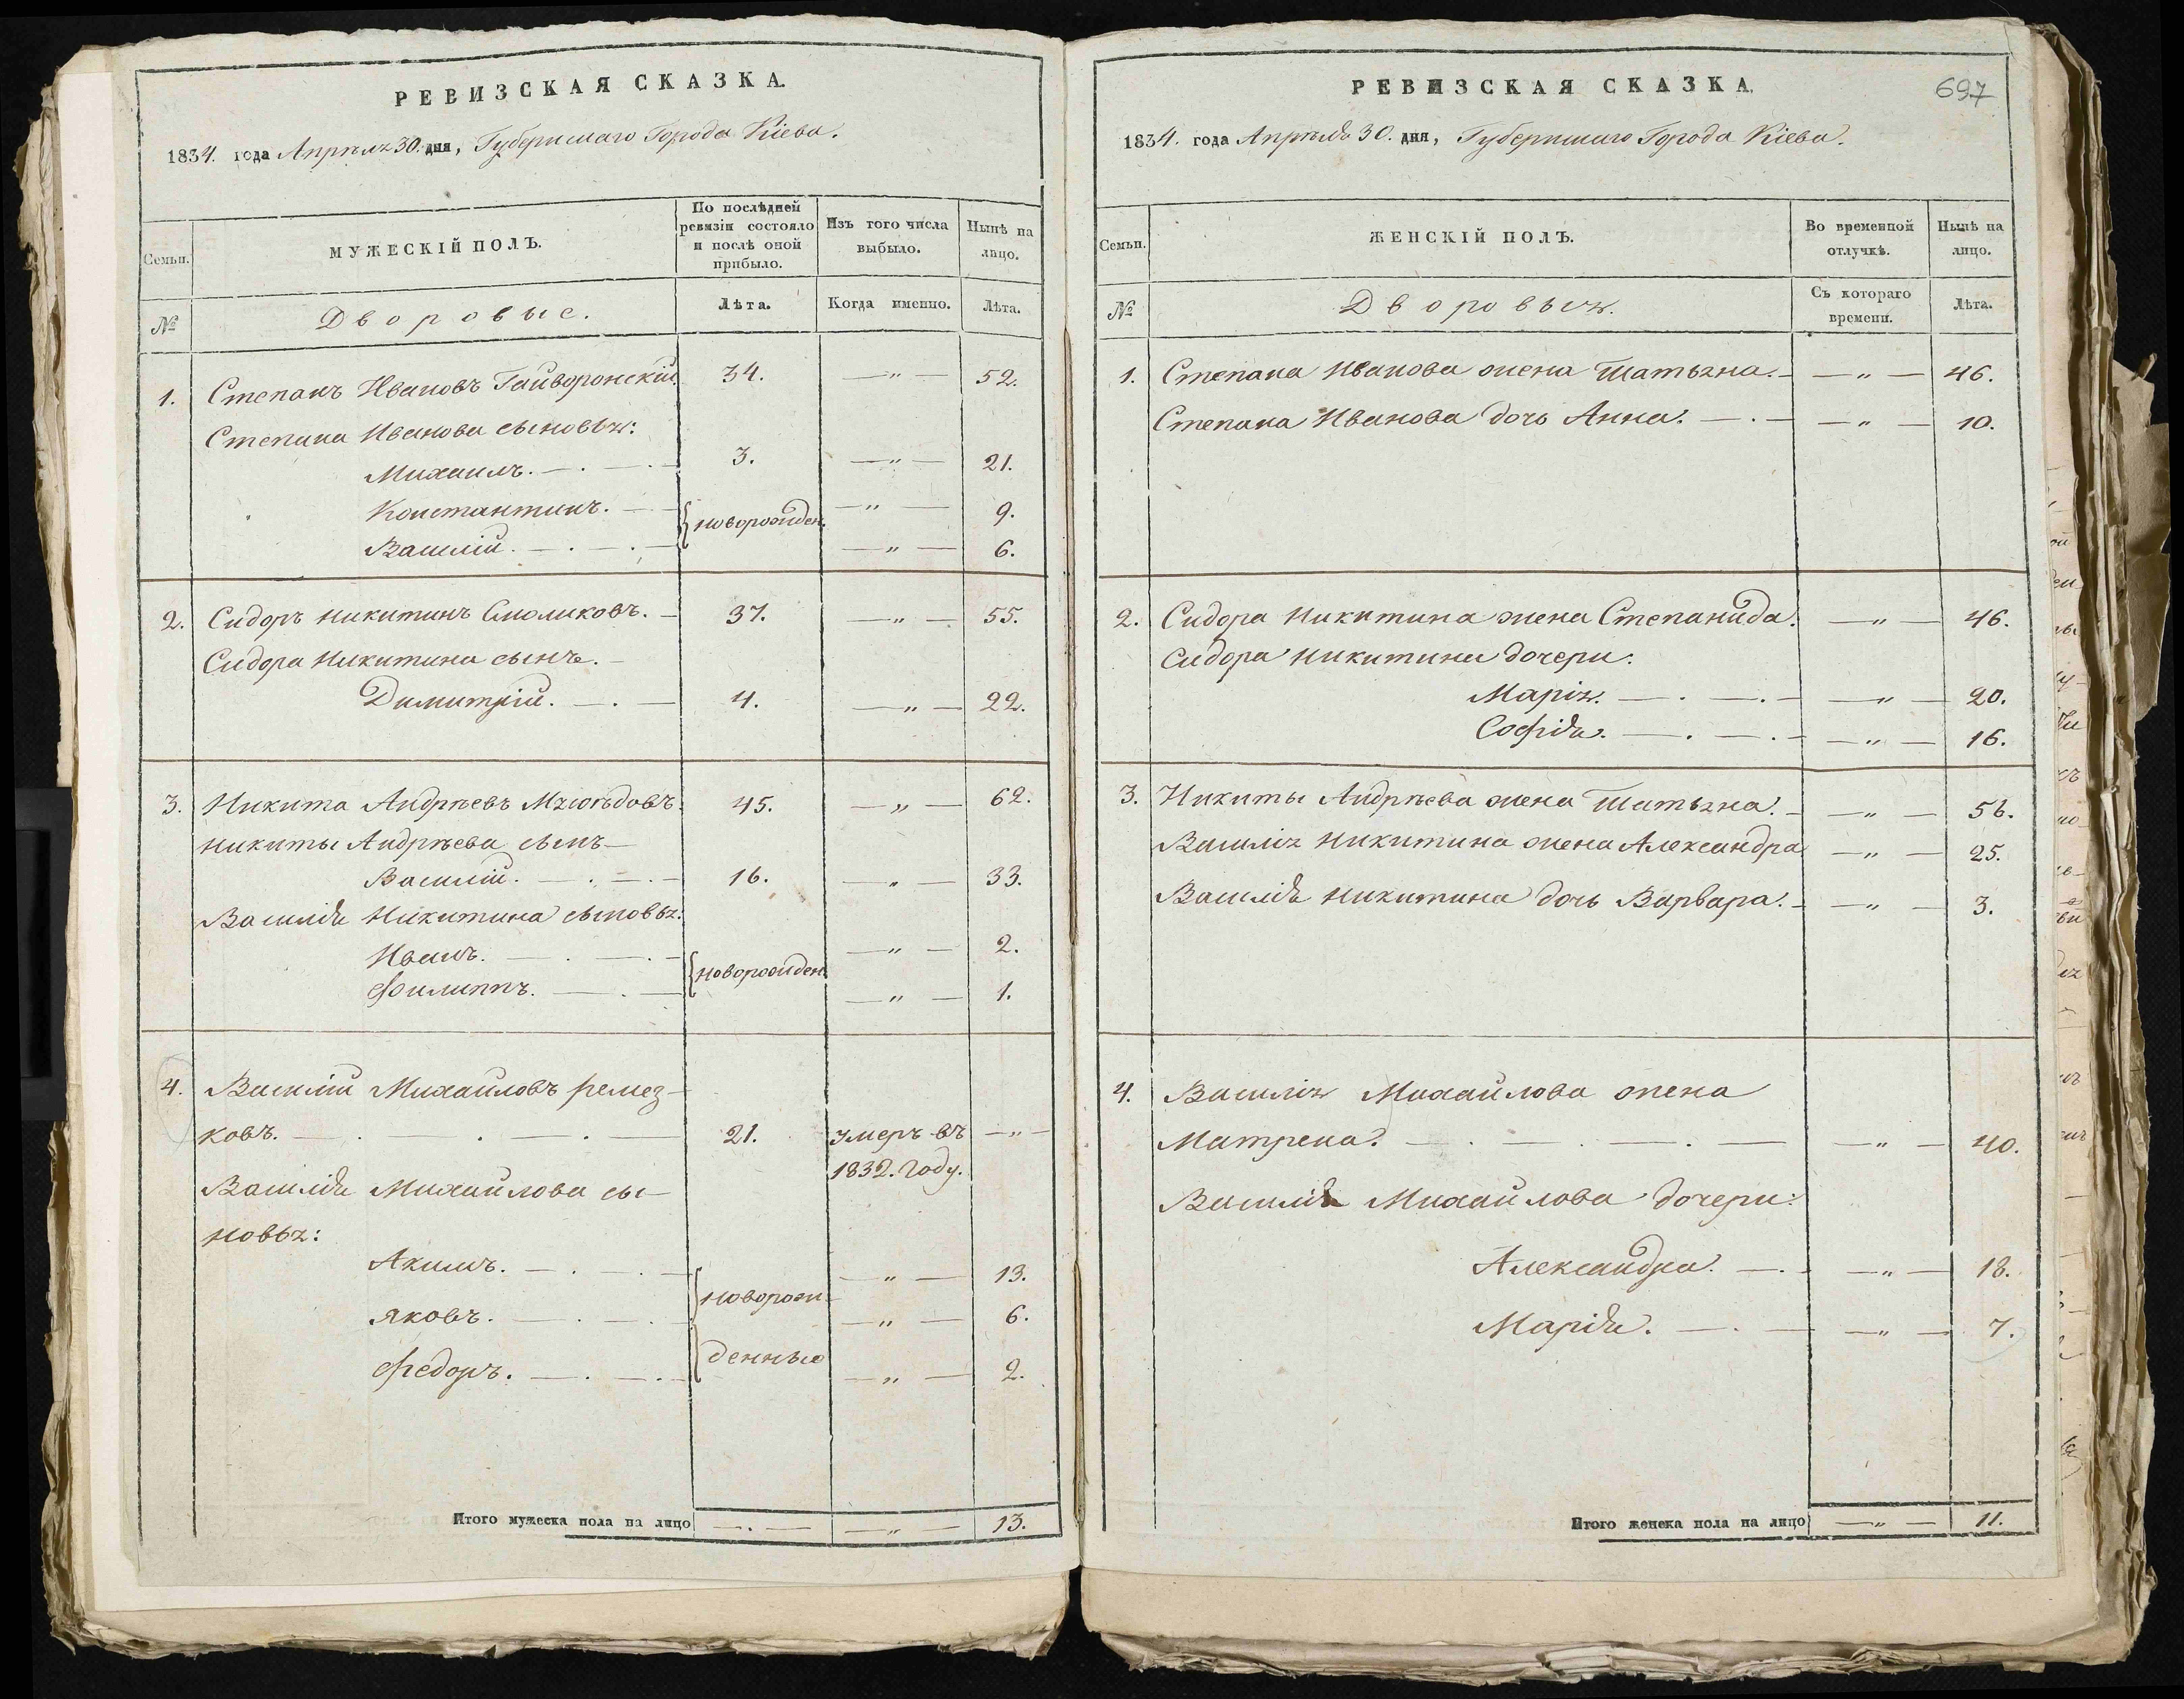 РЕВИЗСКАЯ СКАЗКА.
1834. года Апрѣля 30. дня, Губернскаго Города Кіева.
Семьи.
МУЖЕСКІЙ ПОЛЪ.
По послѣдней ревизіи состояло и послѣ оной прибыло.
Изъ того числа выбыло.
Нынѣ на лицо.
№
Дворовые.
Лѣта.
Когда именно.
Лѣта.
1. Степанъ Ивановъ Гайворонскій. 34. —„— 52.
Степана Иванова сыновья:
Михаилъ. 3. —„— 21.
Константинъ. —„— 9.
{новорожден.
Василій. —„— 6.
2. Сидоръ Никитинъ Смоликовъ. 37. —„— 55.
Сидора Никитина сынъ.
Димитрій. 4. —„— 22.
3. Никита Андрѣевъ 45. —„— 62.
Никиты Андрѣева сынъ
Василій. 16. —„— 33.
Василія Никитина сыновья:
Иванъ. —„— 2.
{новорожден.
Филиппъ. —„— 1.
4. Василій Михайловъ ремез-
ковъ. 21. умеръ въ —„—
1832. году.
Василія Михайлова сы-
новья:
Акимъ. —„— 13.
{новорож-
Яковъ. —„— 6.
денные
Федоръ. —„— 2.
Итого мужеска пола на лицо —.— —„— 13.
РЕВИЗСКАЯ СКАЗКА.
697
1834. года Апрѣля 30. дня, Губернскаго Города Кіева.
Семьи.
ЖЕНСКІЙ ПОЛЪ.
Во временной отлучкѣ.
Нынѣ на лицо.
№
Дворовыя.
Съ котораго времени.
Лѣта.
1. Степана Иванова жена Татьяна. —„— 46.
Степана Иванова дочь Анна. —„— 10.
2. Сидора Никитина жена Степанида. —„— 46.
Сидора Никитина дочери:
Марія. —„— 20.
Софія. —„— 16.
3. Никиты Андрѣева жена Татьяна. —„— 56.
Василія Никитина жена Александра —„— 25.
Василія Никитина дочь Варвара. —„— 3.
4. Василія Михайлова жена
Матрена. —„— 40.
Василія Михайлова дочери:
Александра. —„— 18.
Марія. —„— 7.
Итого женска пола на лицо —„— 11.